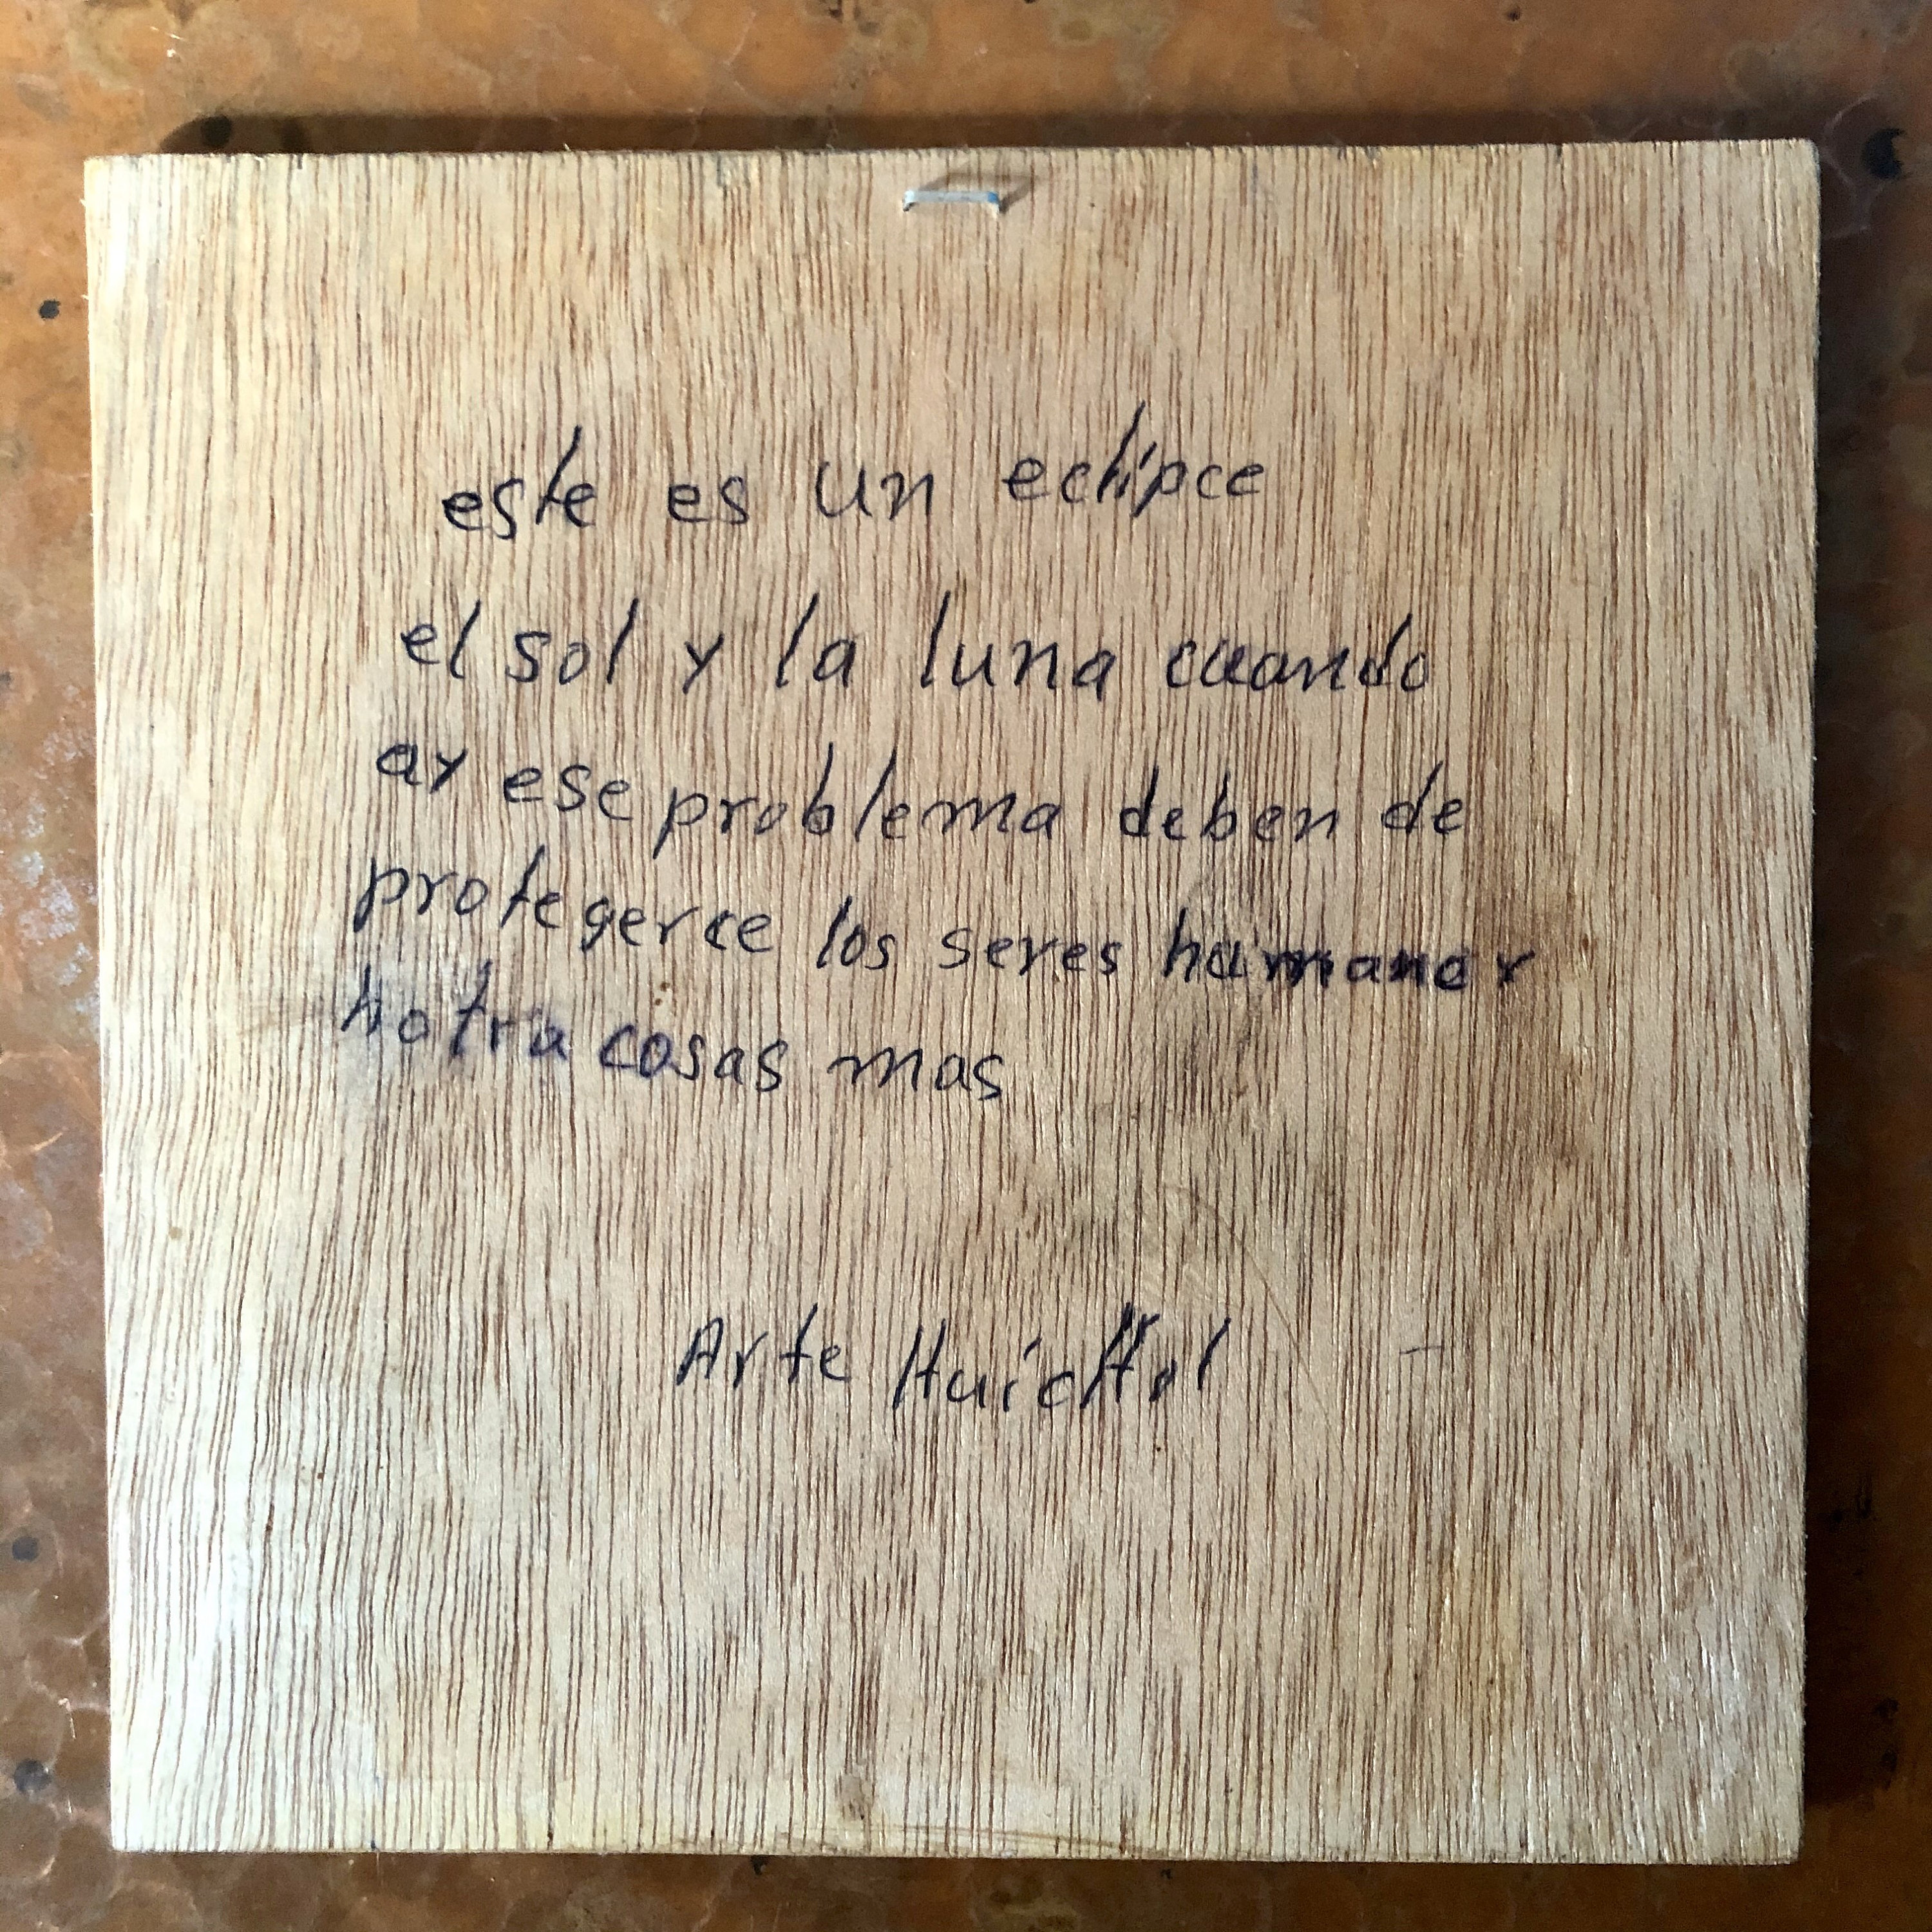 este es un eclipce
el sol y la luna cuando
ay ese problema deben de
protegerce los seres humanos y
hotra cosas mas
Arte HuicHol